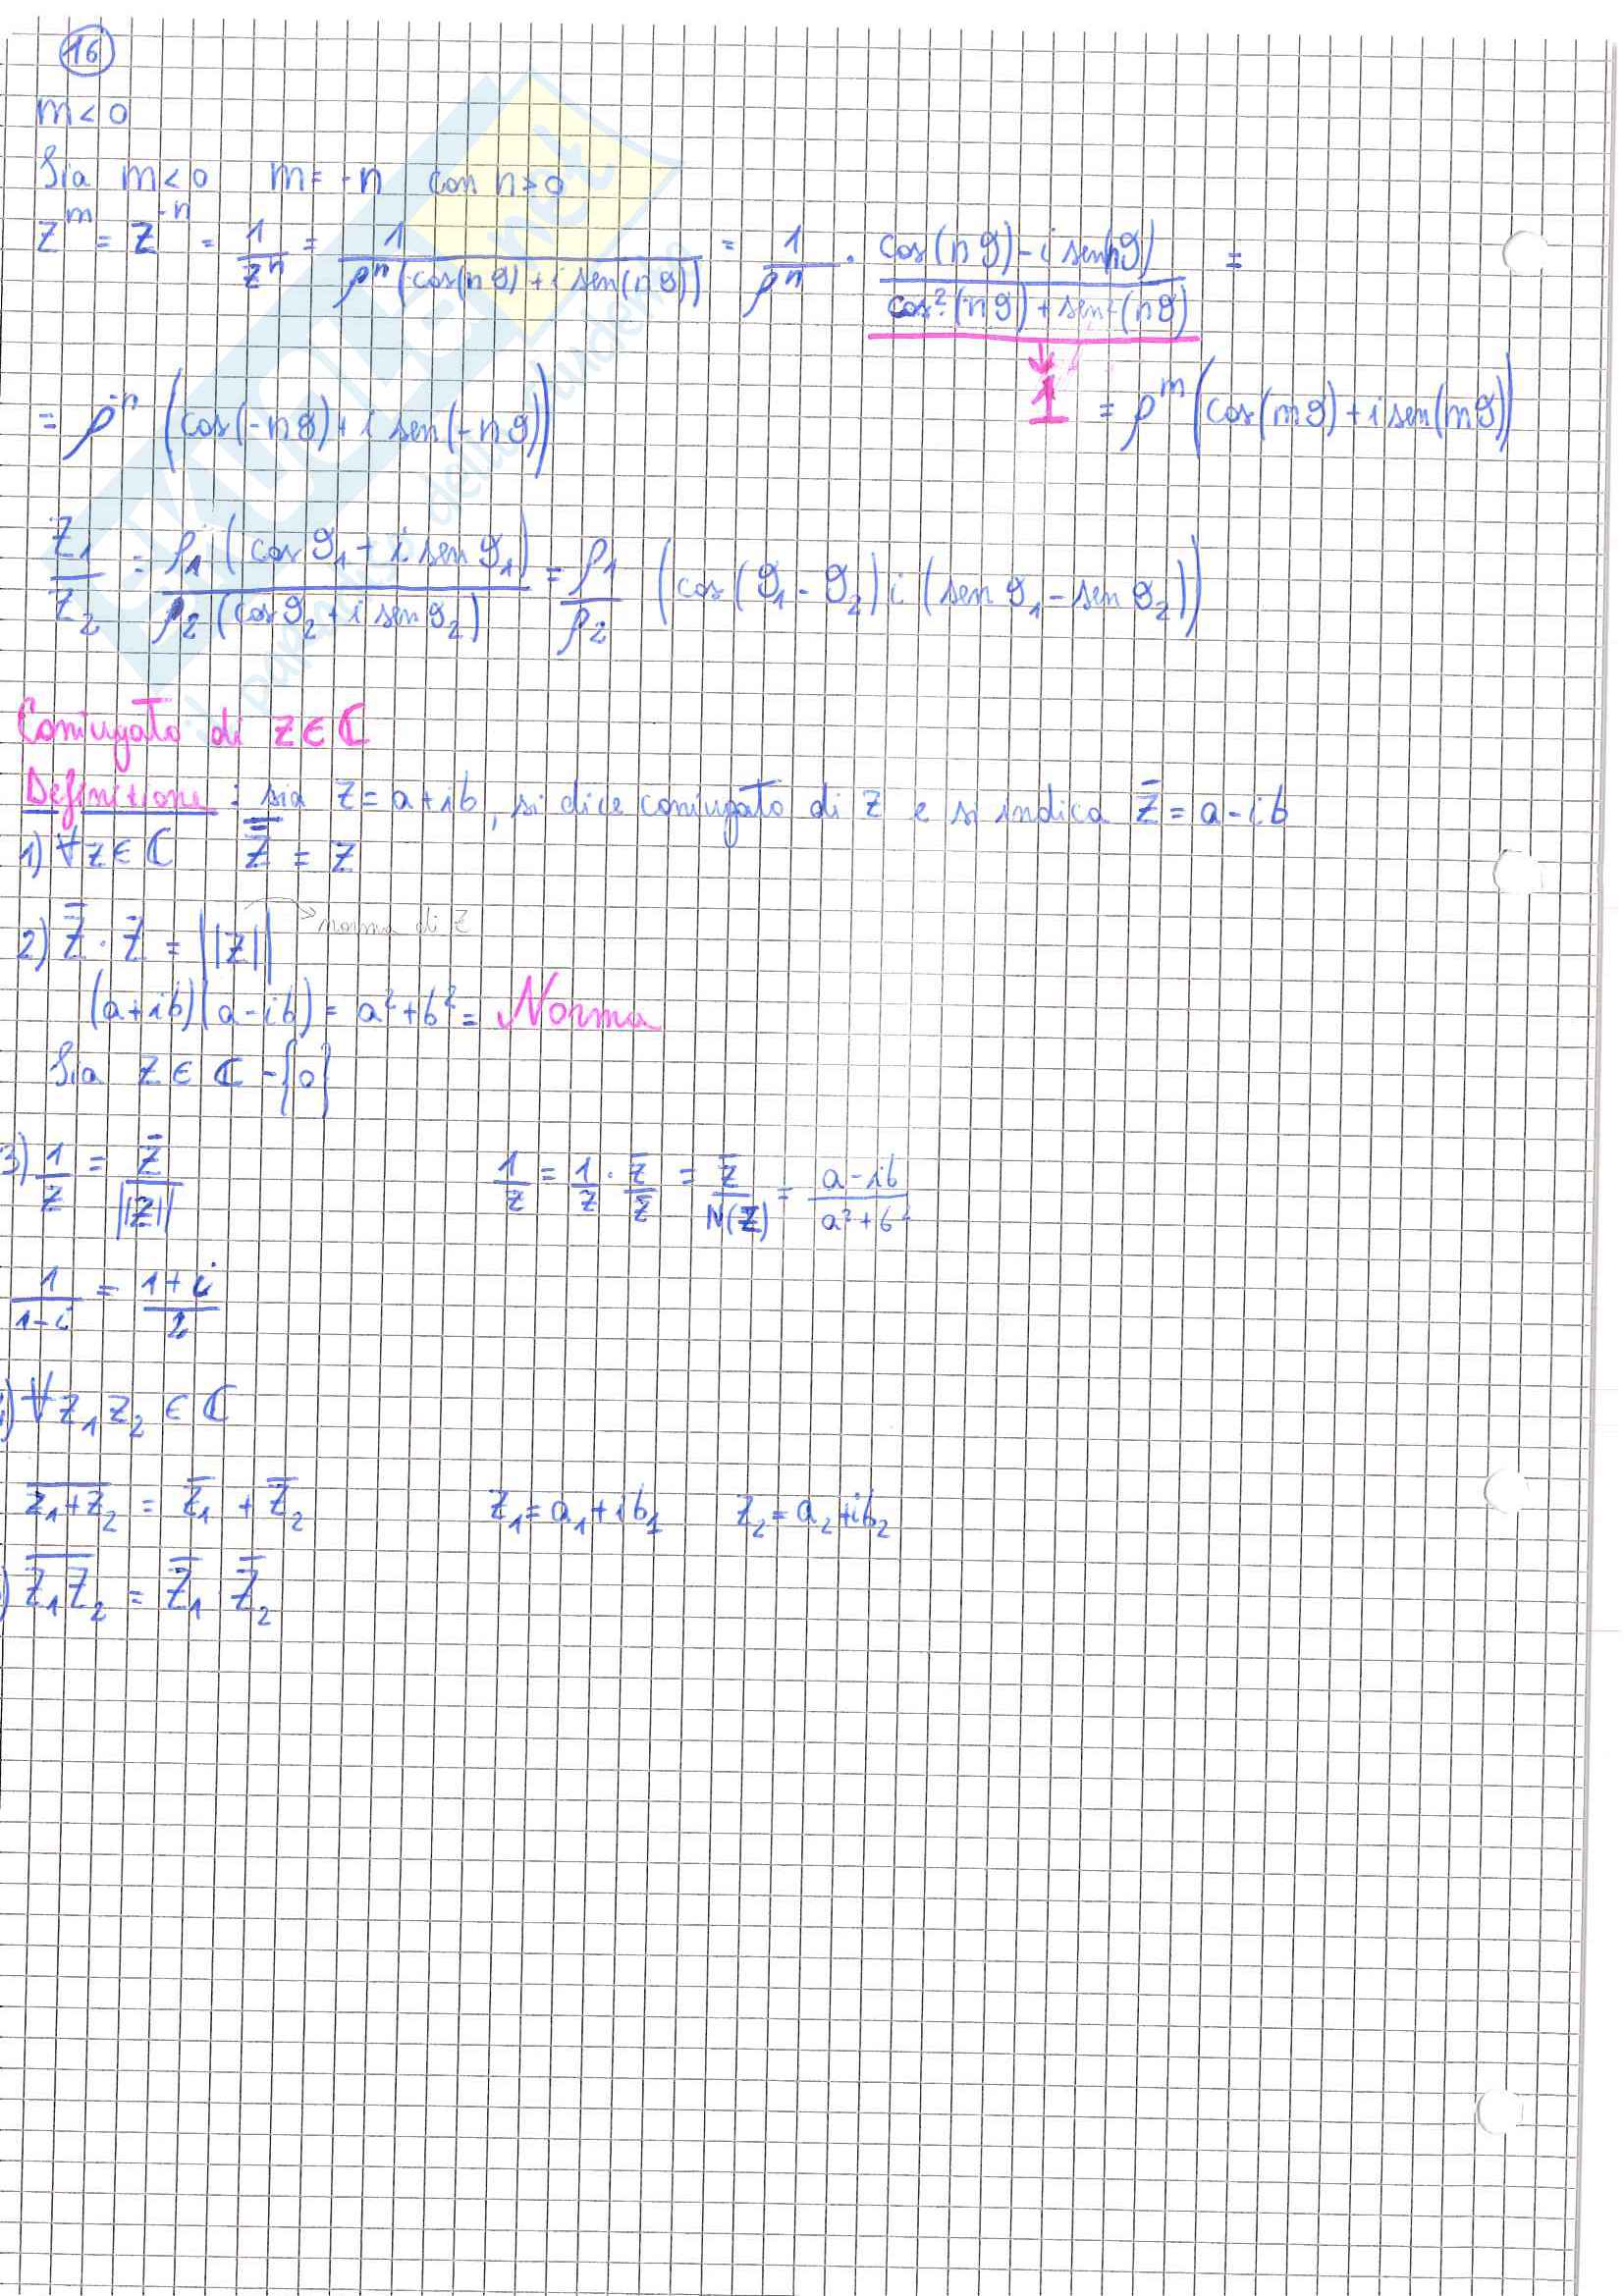 16
m<0
Sia m<0 m=-n con n>0
z^m = z^-n = 1/z^n = 1/ρ^n(cos(nϑ)+i sen(nϑ)) = 1/ρ^n · cos(nϑ)-i sen(nϑ)/cos²(nϑ)+sen²(nϑ) =
1
= ρ^-n (cos(-nϑ)+i sen(-nϑ)) = ρ^m (cos(mϑ)+i sen(mϑ))
z₁/z₂ = ρ₁(cos ϑ₁+i sen ϑ₁)/ρ₂(cos ϑ₂+i sen ϑ₂) = ρ₁/ρ₂ (cos(ϑ₁-ϑ₂) i (sen ϑ₁-sen ϑ₂))
Coniugato di z∈ℂ
Definizione: sia z=a+ib, si dice coniugato di z e si indica z̄=a-ib
1) ∀z∈ℂ z̿ = z
2) z̿ · z̄ = ||z|| norma di z
(a+ib)(a-ib) = a²+b² = Norma
Sia z∈ℂ-{0}
3) 1/z = z̄/||z|| 1/z = 1/z · z̄/z̄ = z̄/N(z) = a-ib/a²+b²
1/1-i = 1+i/2
) ∀z₁z₂∈ℂ
z₁+z₂‾ = z̄₁ + z̄₂ z₁=a₁+ib₁ z₂=a₂+ib₂
) z₁z₂‾ = z̄₁ · z̄₂